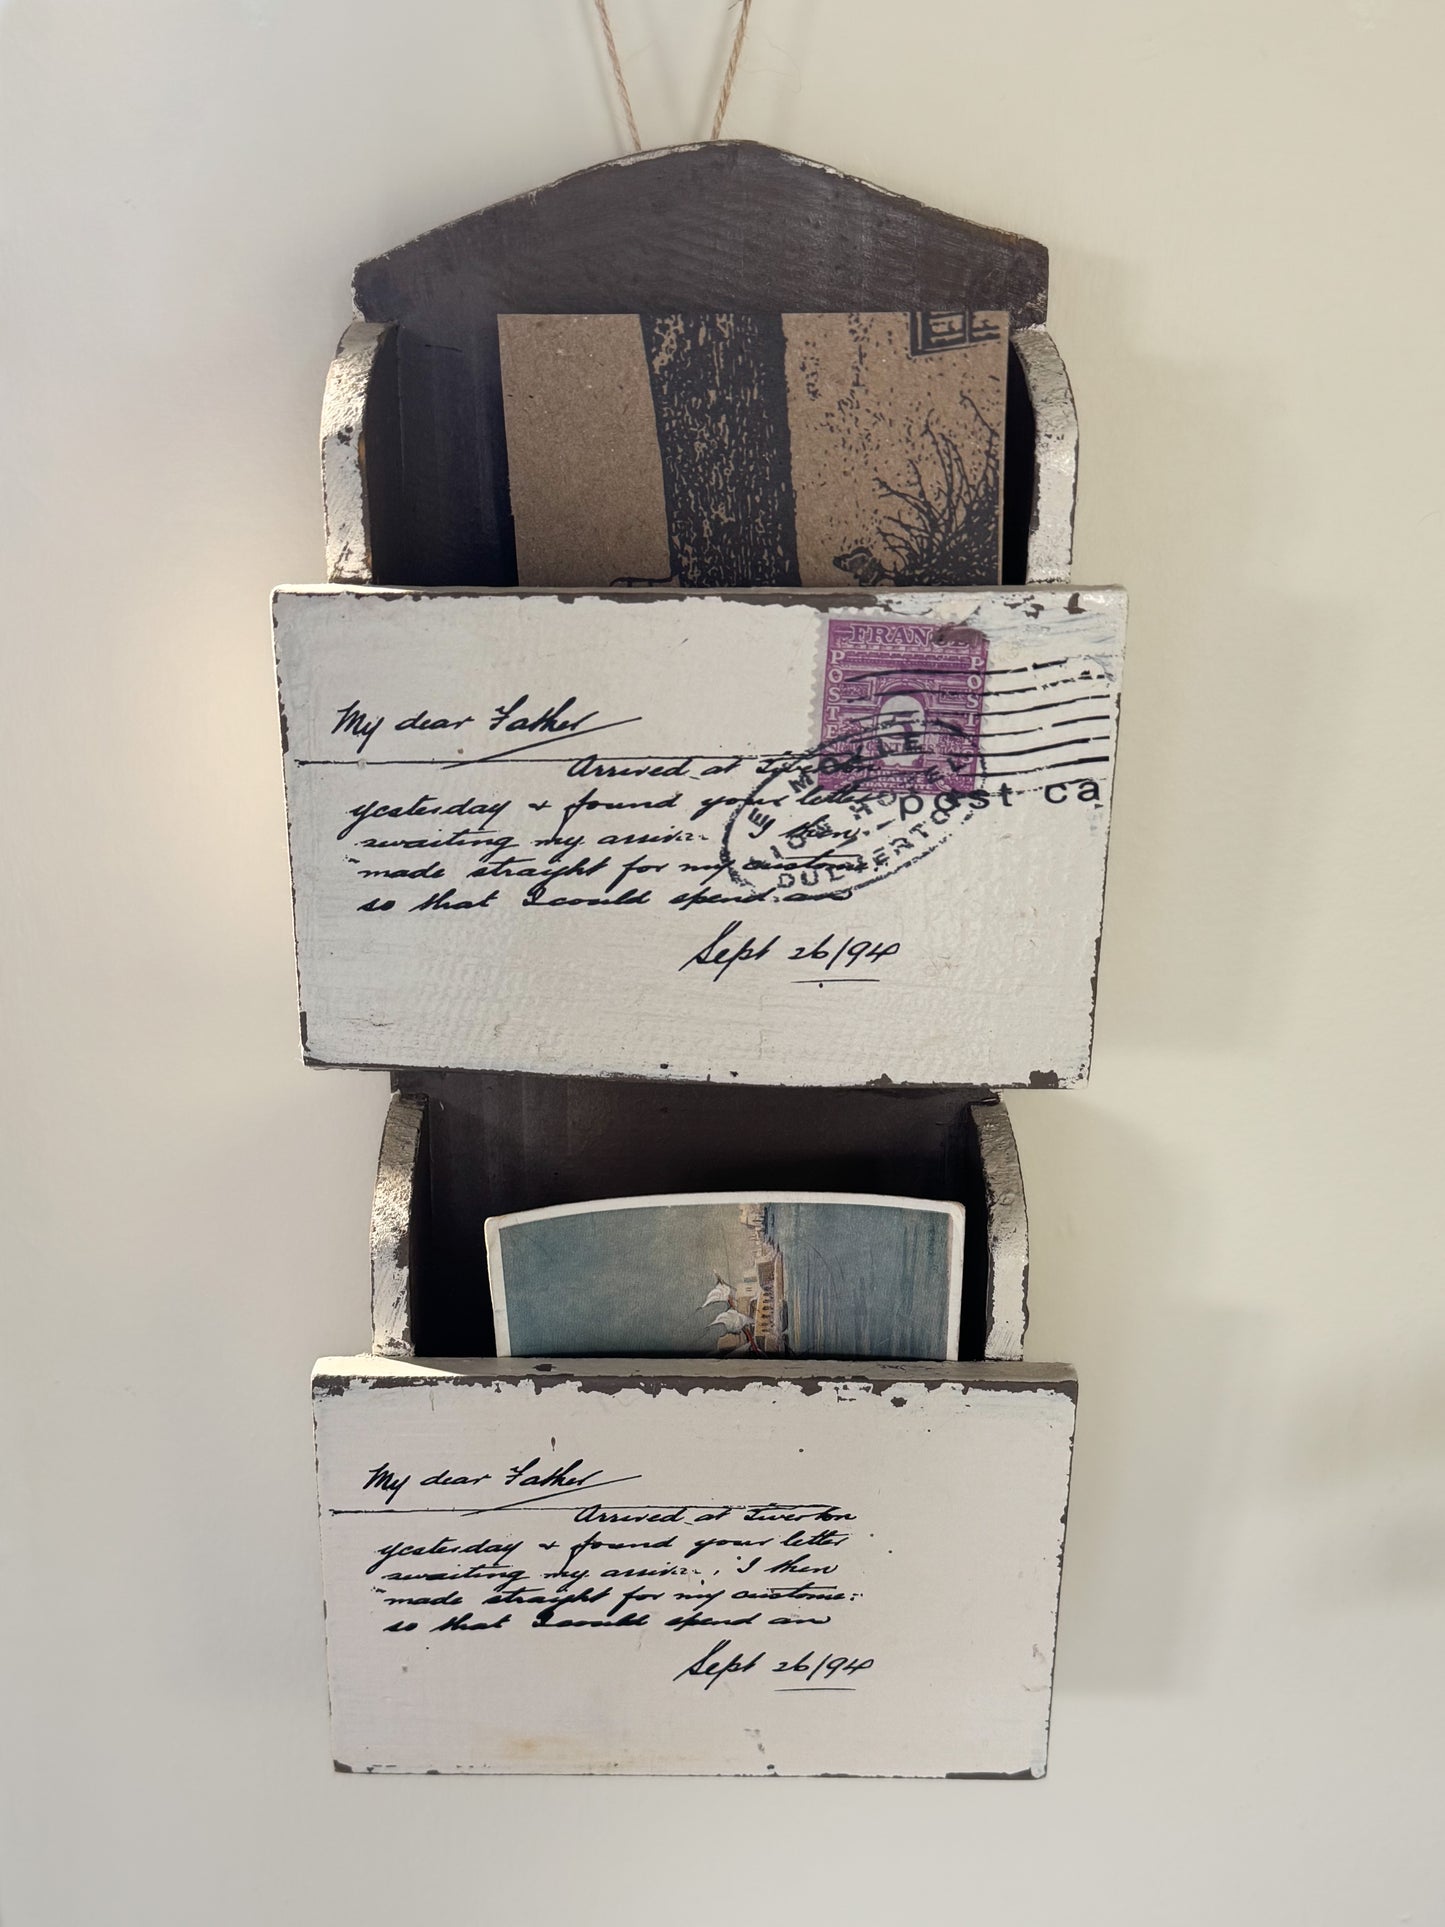 FRANCE
POSTES
POSTES
My dear Father
Arrived at Tiverton
yesterday & found your letter
awaiting my I then
made straight for my
so that I could spend an
post ca
LION HOTEL
DULVERTON
Sept 26/94
My dear Father
Arrived at Tiverton
yesterday & found your letter
awaiting my I then
made straight for my
so that I could spend an
Sept 26/94